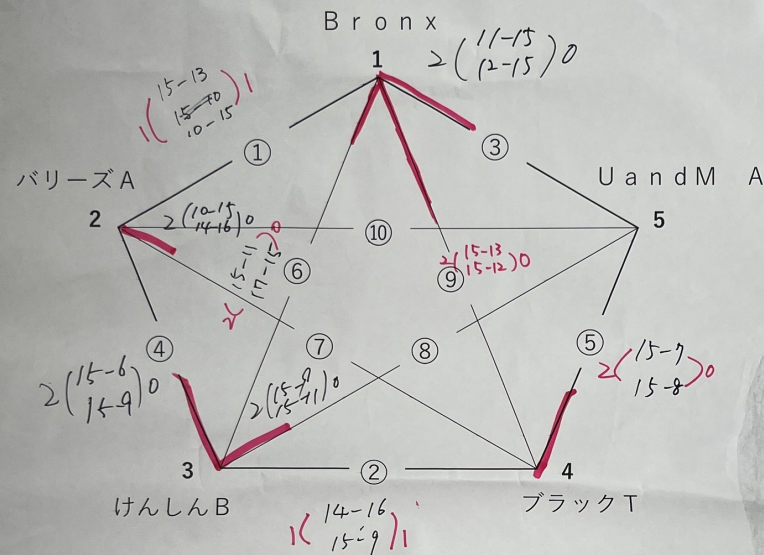 Bronx
1
2(11-15
12-15)0
1(15-13
10-15)1
①
③
バリーズA
UandM A
2
5
2(10-15
14-16)0
⑩
⑥
15-11
2(15-13
15-12)0
⑨
④
⑦
⑧
⑤
2(15-6
15-9)0
2(15-9
15-11)0
2(15-7
15-8)0
3
②
4
けんしんB
ブラックT
1(14-16
15-9)1